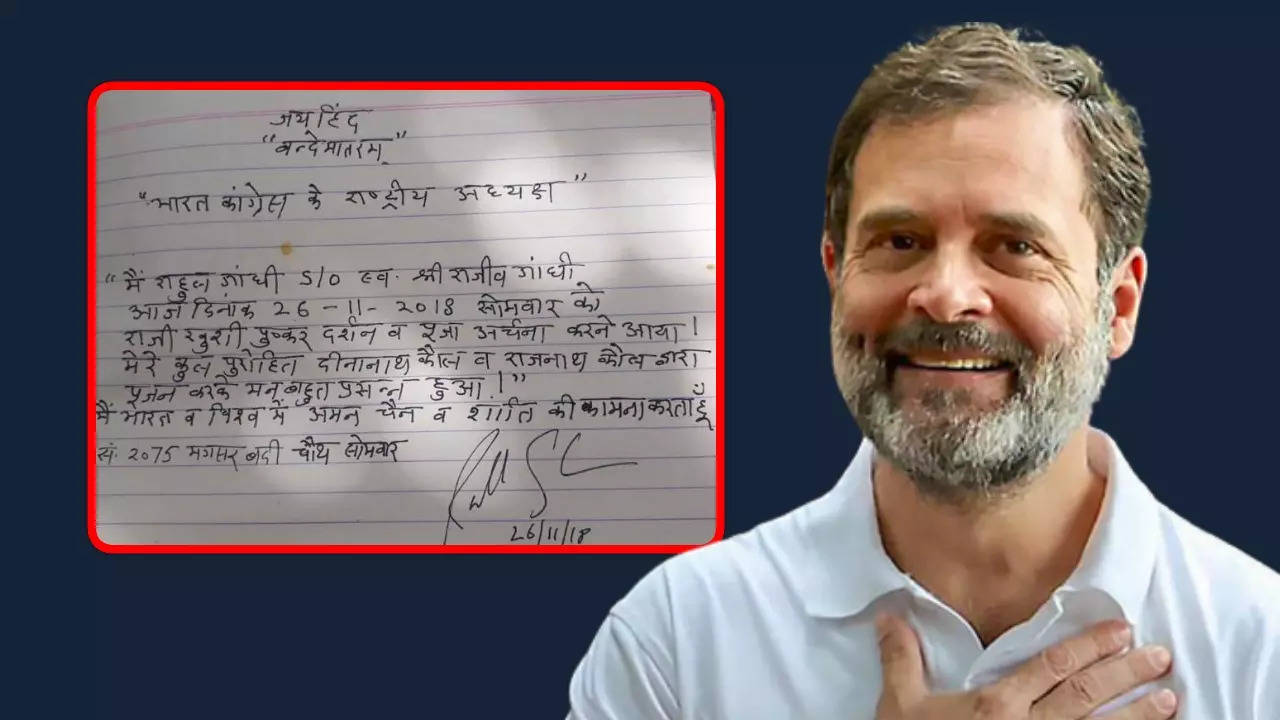 जय हिंद
"वन्देमातरम्"
"भारत कांग्रेस के राष्ट्रीय अध्यक्ष"
"मैं राहुल गांधी S/O स्व. श्री राजीव गांधी
आज दिनांक 26-11-2018 सोमवार को
राजी खुशी पुष्कर दर्शन व पूजा अर्चना करने आया।
मेरे कुल पुरोहित दीनानाथ कौल व राजनाथ कौल द्वारा
पूजन करके मन बहुत प्रसन्न हुआ।"
मैं भारत व विश्व में अमन चैन व शांति की कामना करता हूँ
सं. 2075 मगसर बदी चौथ सोमवार
26/11/18